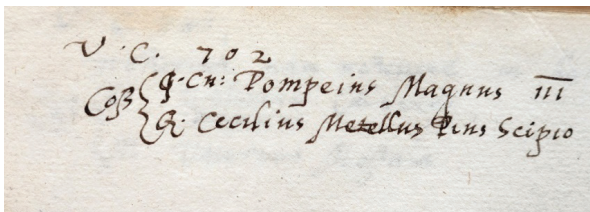 V. C. 702
Coß Cn: Pompeius Magnus III
Q. Cecilius Metellus Pius Scipio